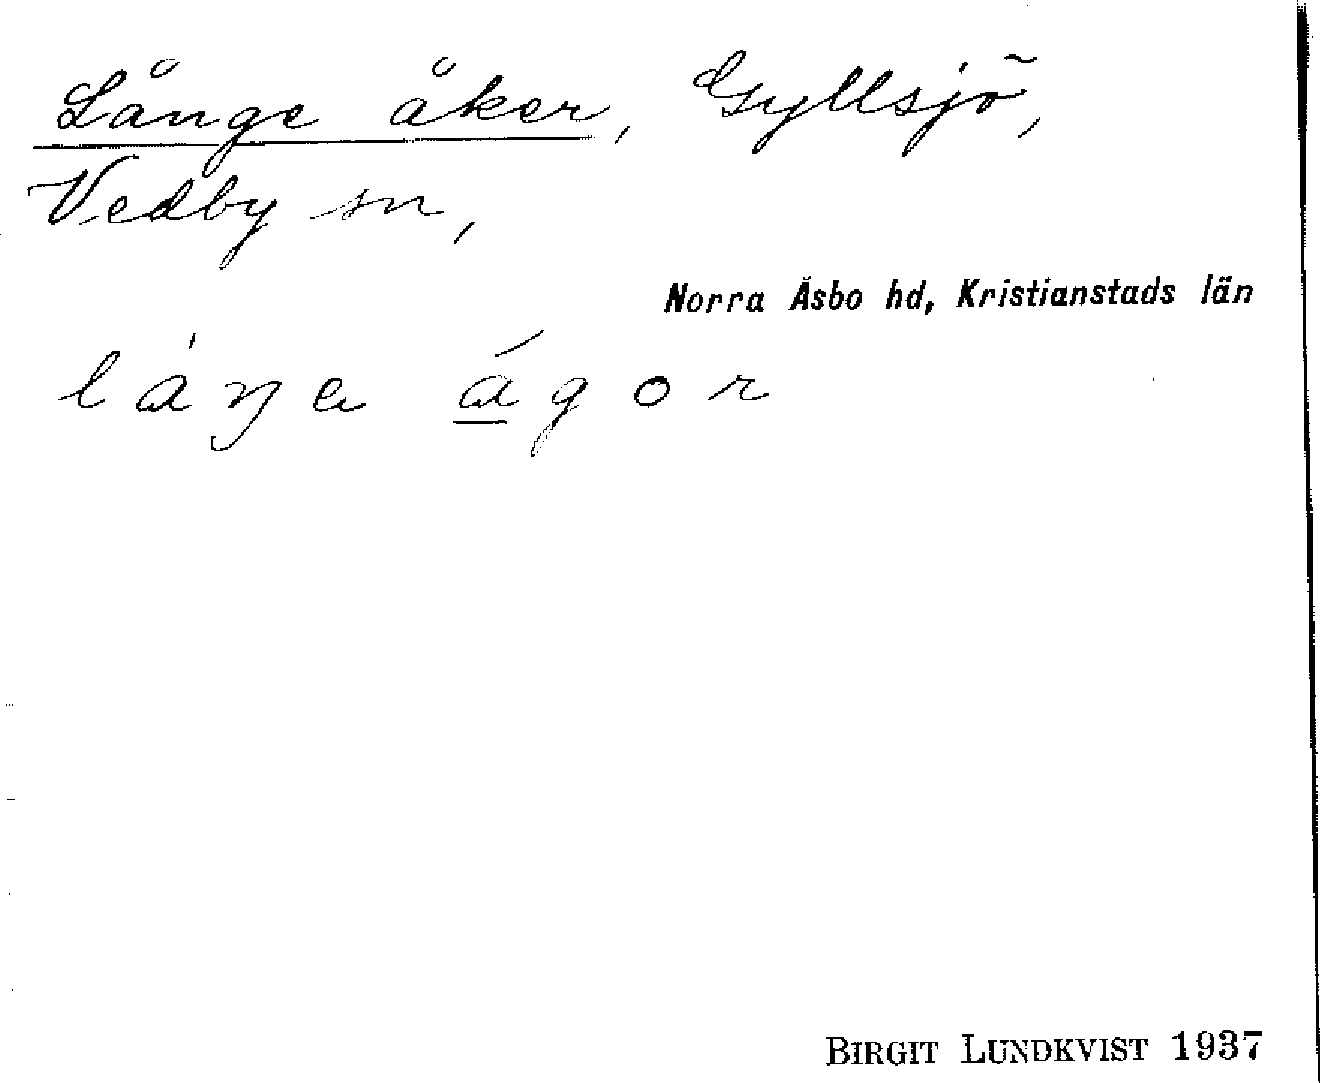 Långe åker, Gyllsjö,
Vedby sn,
Norra Åsbo hd, Kristianstads län
láŋa á̱gor
BIRGIT LUNDKVIST 1937